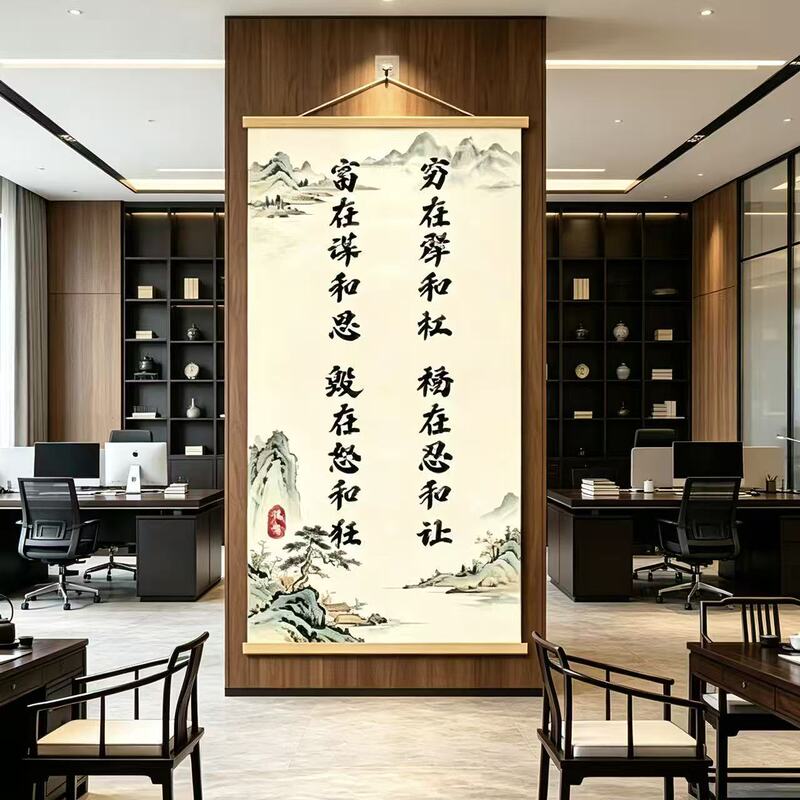 穷在犟和杠 在忍和让
富在谋和思 毁在怒和狂